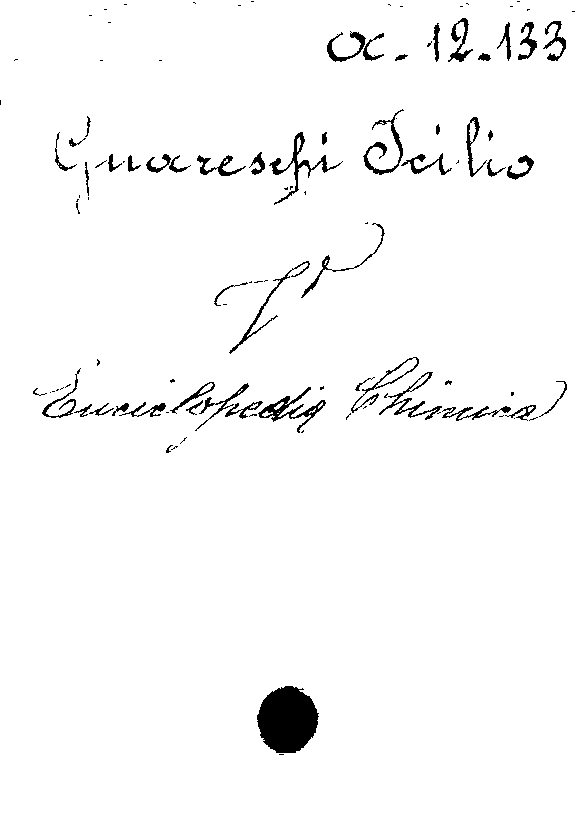 α. 12.133
Guareschi Icilio
Vd
Enciclopedia Chimica